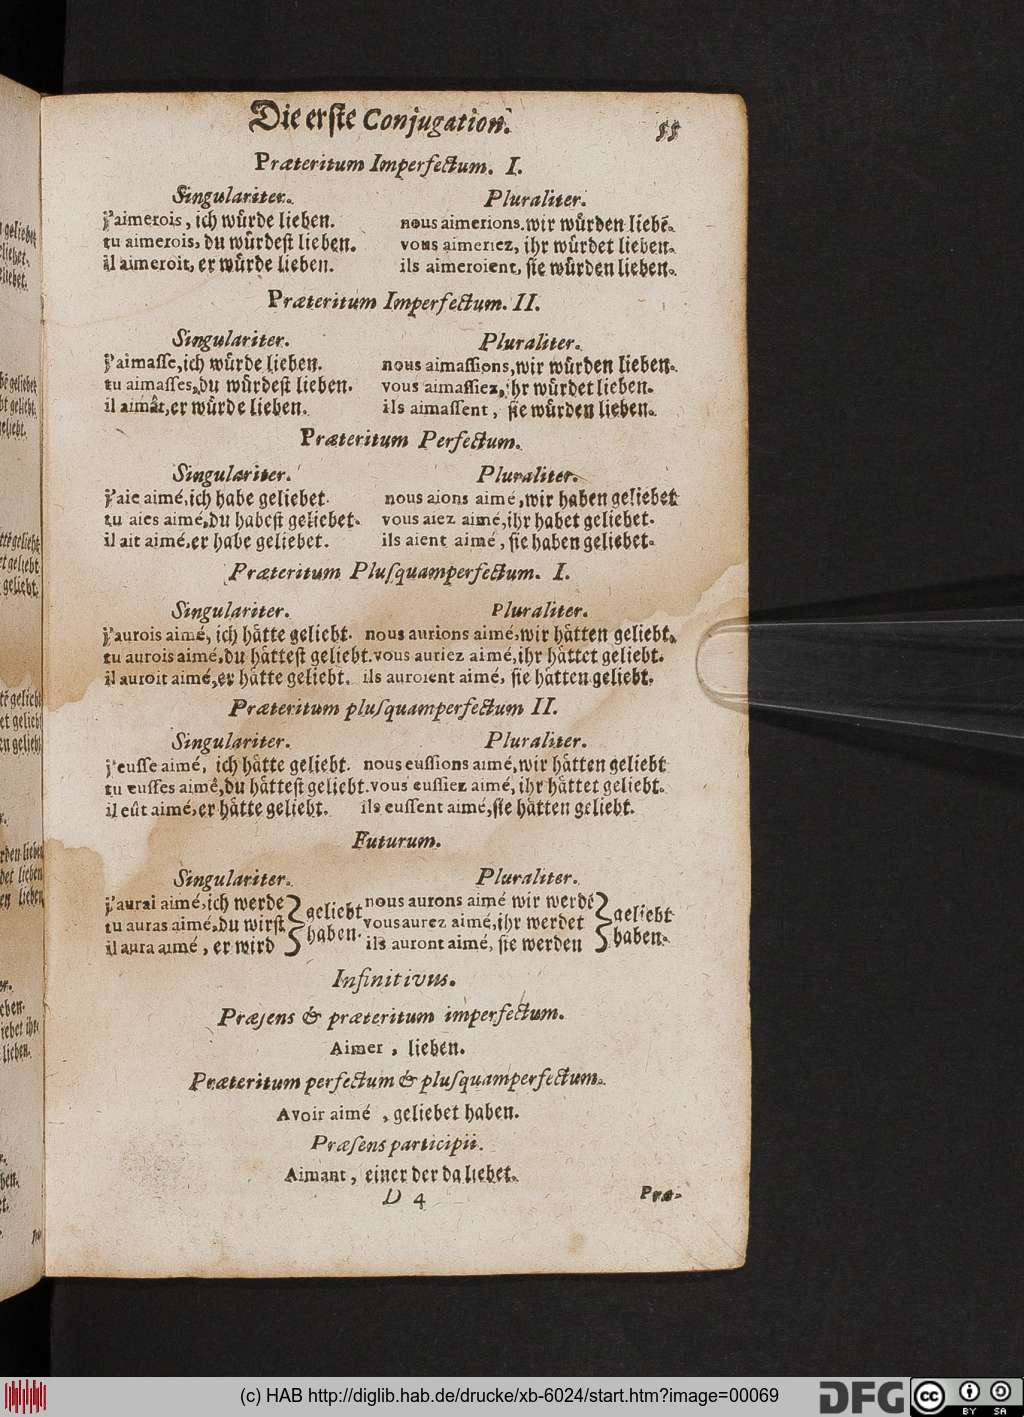 Die erſte Conjugation. 55
Præteritum Imperfectum. I.
Singulariter. Pluraliter.
j'aimerois, ich wuͤrde lieben. nous aimerions. wir wuͤrden liebẽ.
tu aimerois, du wuͤrdeſt lieben. vous aimeriez, ihr wuͤrdet lieben.
il aimeroit, er wuͤrde lieben. ils aimeroient, ſie wuͤrden lieben.
Præteritum Imperfectum. II.
Singulariter. Pluraliter.
j'aimaſſe, ich wuͤrde lieben. nous aimaſſions, wir wuͤrden lieben.
tu aimaſſes, du wuͤrdeſt lieben. vous aimaſſiez, ihr wuͤrdet lieben.
il aimât, er wuͤrde lieben. ils aimaſſent, ſie wuͤrden lieben.
Præteritum Perfectum.
Singulariter. Pluraliter.
j'aie aimé, ich habe geliebet. nous aions aimé, wir haben geliebet
tu aies aimé, du habeſt geliebet. vous aiez aimé, ihr habet geliebet.
il ait aimé, er habe geliebet. ils aient aimé, ſie haben geliebet.
Præteritum Pluſquamperfectum. I.
Singulariter. Pluraliter.
j'aurois aimé, ich haͤtte geliebt. nous aurions aimé, wir haͤtten geliebt.
tu aurois aimé, du haͤtteſt geliebt. vous auriez aimé, ihr haͤttet geliebt.
il auroit aimé, er haͤtte geliebt. ils auroient aimé, ſie haͤtten geliebt.
Præteritum pluſquamperfectum II.
Singulariter. Pluraliter.
j'euſſe aimé, ich haͤtte geliebt. nous euſſions aimé, wir haͤtten geliebt
tu euſſes aimé, du haͤtteſt geliebt. vous euſſiez aimé, ihr haͤttet geliebt.
il eût aimé, er haͤtte geliebt. ils euſſent aimé, ſie haͤtten geliebt.
Futurum.
Singulariter. Pluraliter.
j'aurai aimé, ich werde nous aurons aimé wir werdẽ
tu auras aimé, du wirſt geliebt haben. vous aurez aimé, ihr werdet geliebt haben.
il aura aimé, er wird ils auront aimé, ſie werden
Infinitivus.
Præſens & præteritum imperfectum.
Aimer, lieben.
Præteritum perfectum & pluſquamperfectum.
Avoir aimé, geliebet haben.
Præſens participii.
Aimant, einer der da liebet.
D 4 Præ-
(c) HAB http://diglib.hab.de/drucke/xb-6024/start.htm?image=00069
DFG
cc BY SA